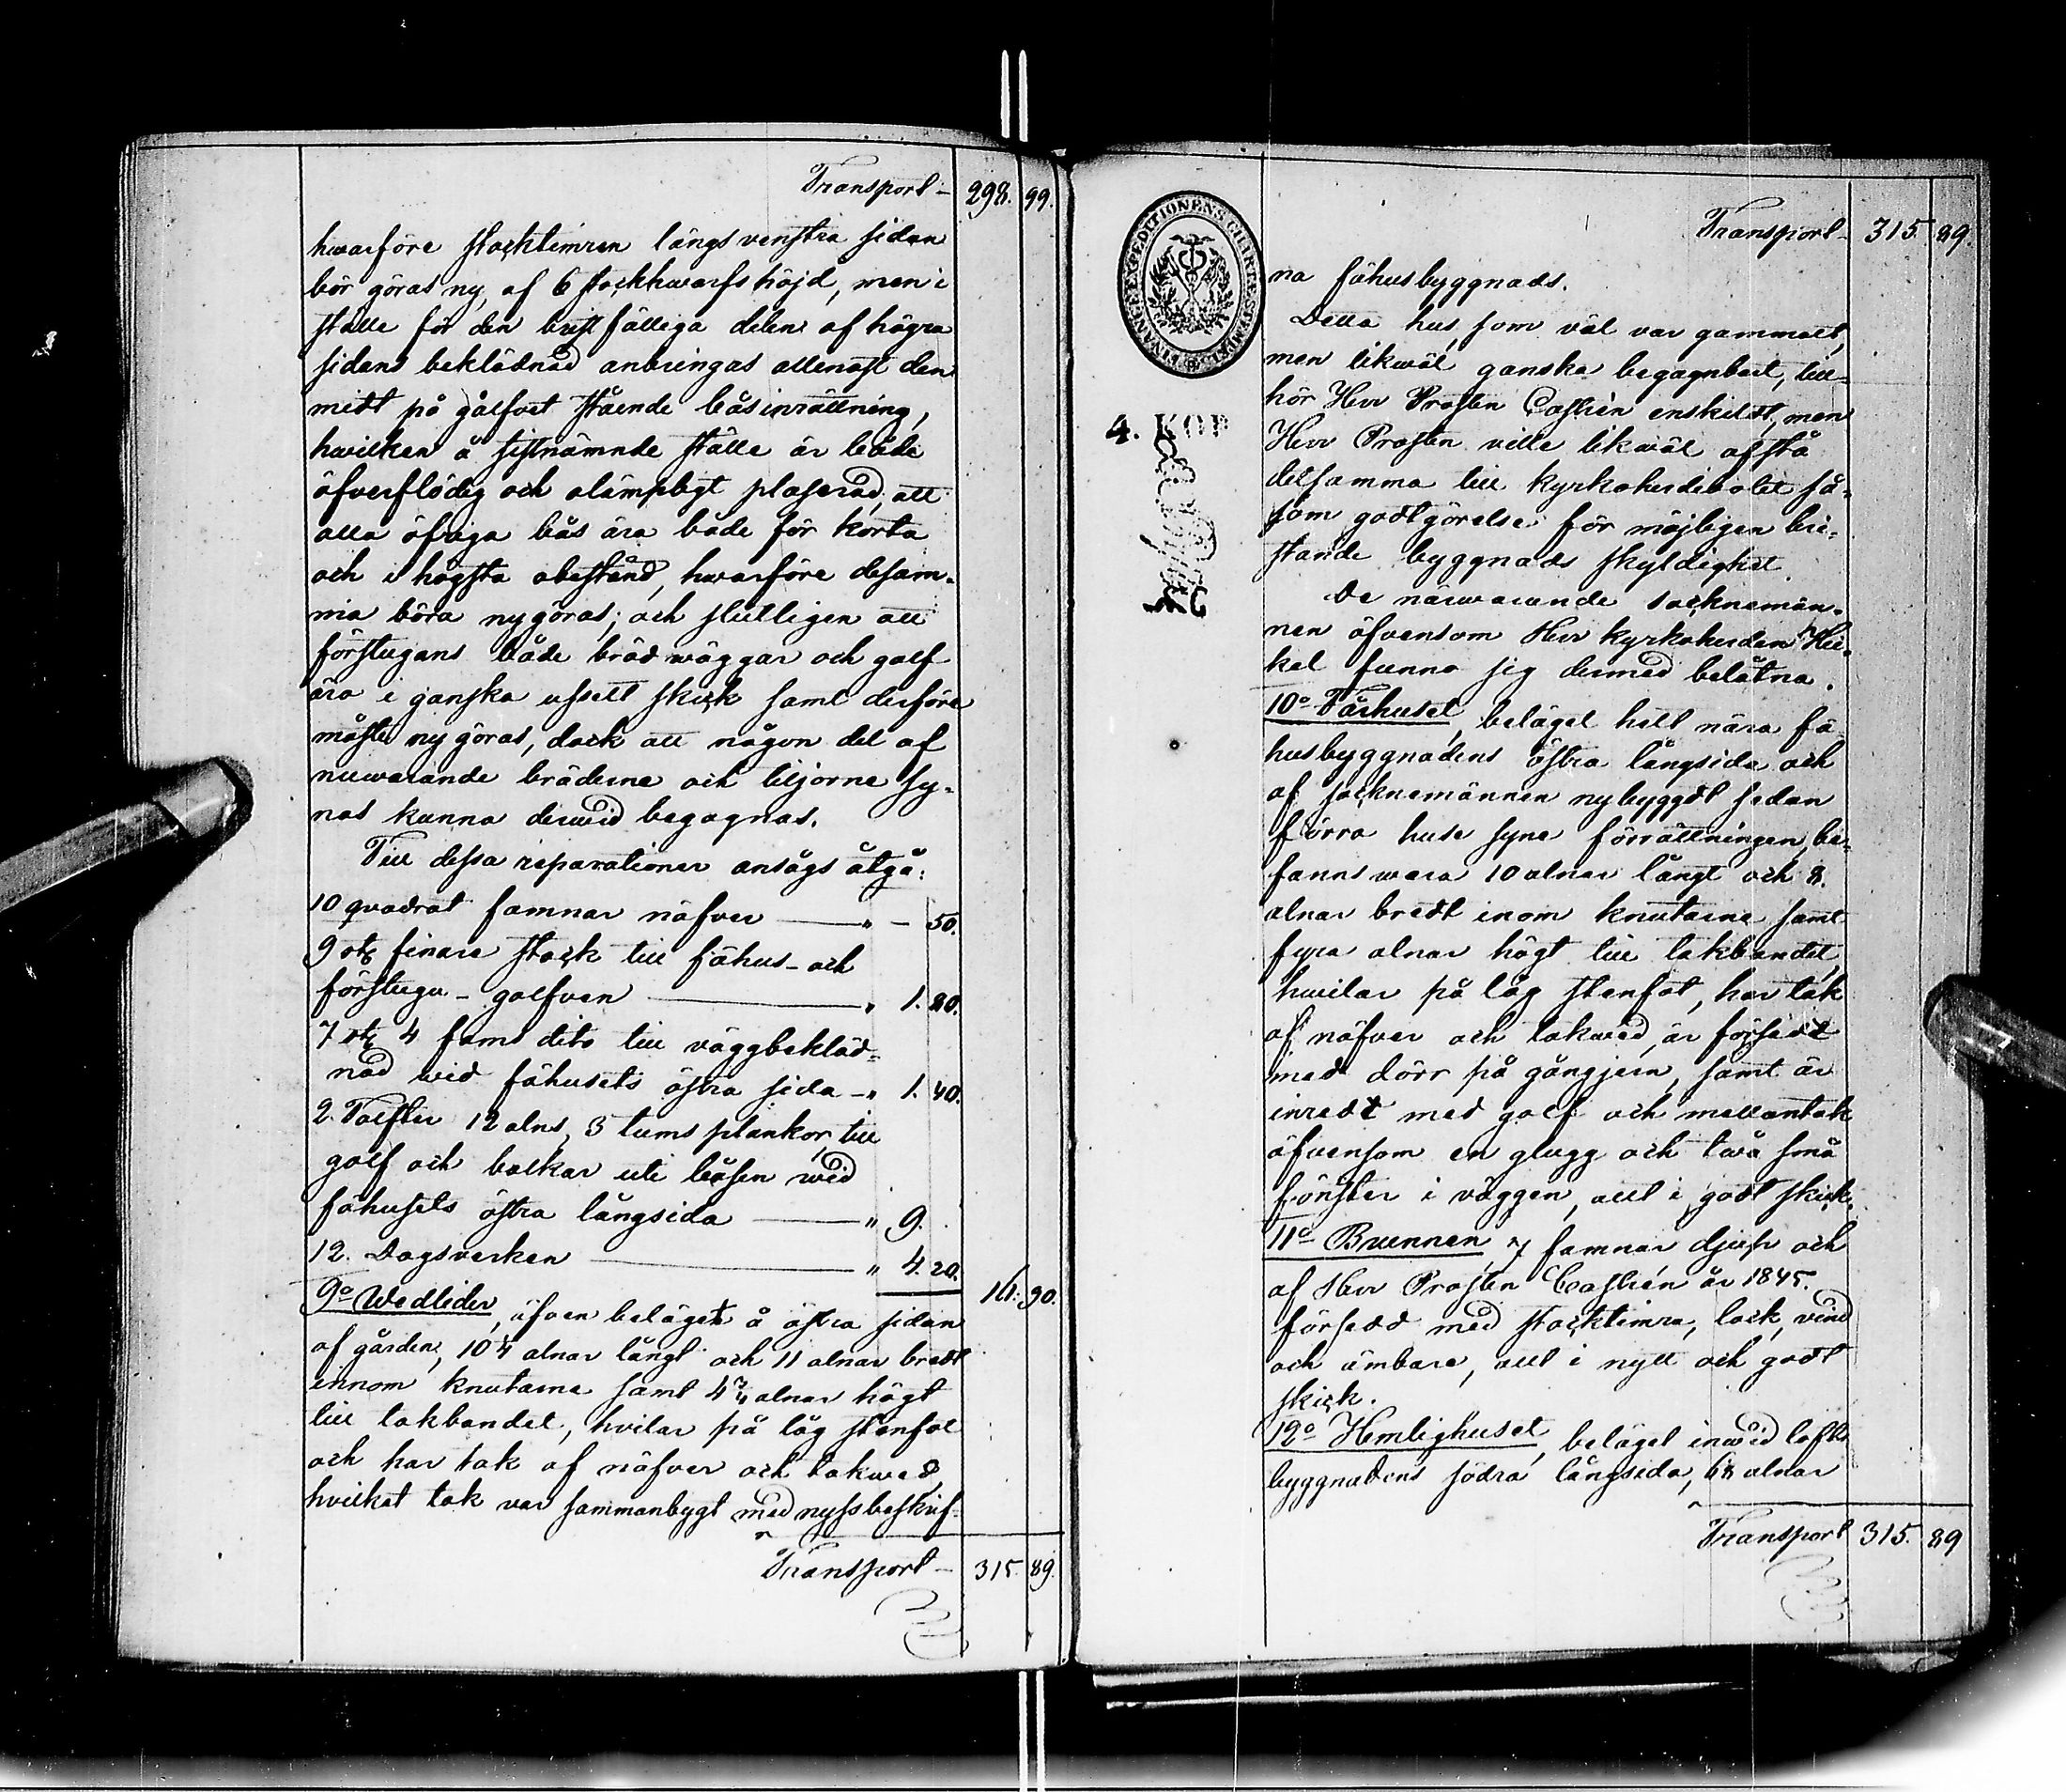 Transport - 298. 99.
hwarföre stocktimren längs venstra sidan
bör göras ny, af 6 stockhwarfs höjd, men i
ställe för den bristfälliga delen af högra
sidans beklädnad anbringas allenast den
midt på golfvet stående båsinrättning,
hwilken å sistnämnde ställe är både
öfverflödig och olämpligt placerad, att
alla öfriga bås äro både för korta
och i högsta obestånd, hwarföre desam-
ma böra nygöras; och slutligen att
förstugans både brädwäggar och golf
äro i ganska usselt skick samt derföre
måste ny göras, dock att någon del af
nuwarande bräderne och tiljorne sy-
nas kunna derwid begagnas.
Till dessa reparationer ansågs åtgå:
10 qvadrat famnar näfver " - 50.
9 st finare stock till fähus- och
förstugu- golfven " 1. 80.
7 st 4 fams dito till väggbekläd-
nad wid fähusets östra sida - " 1. 40.
2. Tolfter 12 alns, 3 tums plankor, till
golf och balkar uti båsen wid
fähusets östra långsida " 9.
12. Dagsverken " 4. 20. 16. 90.
9o Wedlider, äfven beläget å östra sidan
af gården, 10¼ alnar långt och 11 alnar bredt
innom knutarne samt 4¾ alnar högt
till takbandet, hvilar på låg stenfot
och har tak af näfver och takwed,
hvilket tak var sammanbygt med nyssbeskrif-
Transport - 315. 89.
Transport - 315 89.
4. KOP
na fähusbyggnads.
Detta hus, som väl var gammalt,
men likwäl ganska begagnbart, till-
hör Herr Prosten Castrén enskildt, men
Herr Prosten ville likwäl afstå
detsamma till kyrkoherdebolet så-
som godtgörelse för möjligen bri-
stande byggnads skyldighet.
De närwarande socknemän-
nen äfvensom Herr kyrkoherden Hei-
kel funno sig dermed belåtna.
10o Fårhuset, beläget hitt nära fä
husbyggnadens östra långsida och
af socknemännen nybyggdt sedan
förra huse syne förrättningen, be-
fanns wara 10 alnar långt och 8.
alnar bredt inom knutarne samt
fyra alnar högt till takbandet,
hwilar på låg stenfot, har tak
af näfver och takwed, är försedt
med dörr på gångjern, samt är
inredt med golf och mellantak
äfvensom en glugg och twå små
fönster i väggen, allt i godt skick.
11o Brunnen, 7 famnar djup och
af Herr Prosten Castrén år 1845.
försedd med stocktimra, lock, vind
och ämbare, allt i nytt och godt
skick.
12o Hemlighuset, beläget inwid lofts
byggnadens södra långsida, 6⅛ alnar
Transport 315. 89